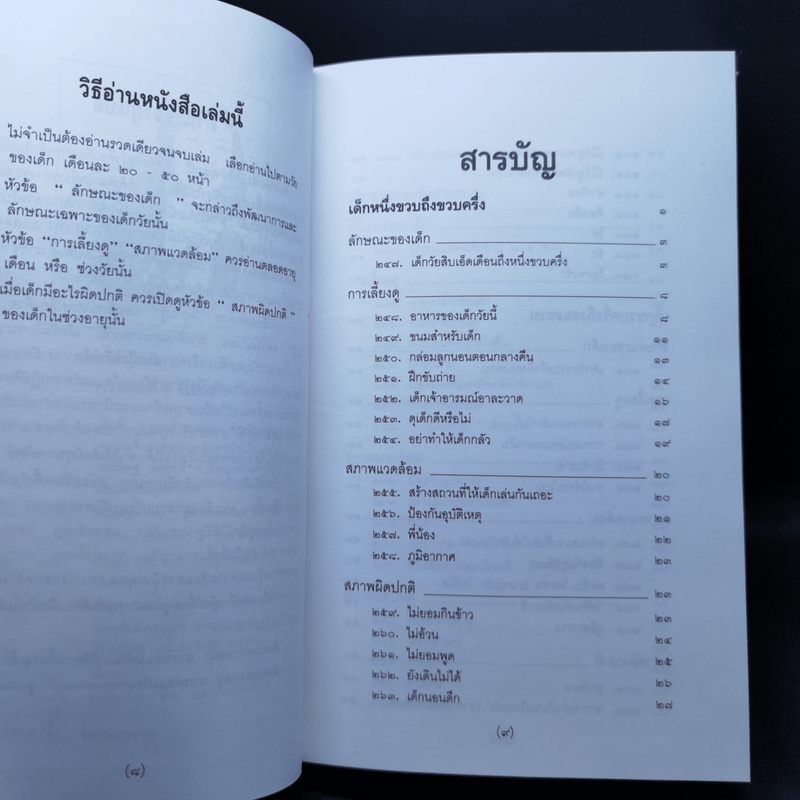 วิธีอ่านหนังสือเล่มนี้
ไม่จำเป็นต้องอ่านรวดเดียวจนจบเล่ม เลือกอ่านไปตามวัย
ของเด็ก เดือนละ ๒๐ - ๕๐ หน้า
หัวข้อ “ ลักษณะของเด็ก ” จะกล่าวถึงพัฒนาการและ
ลักษณะเฉพาะของเด็กวัยนั้น
หัวข้อ “การเลี้ยงดู” “สภาพแวดล้อม” ควรอ่านตลอดอายุ
เดือน หรือ ช่วงวัยนั้น
เมื่อเด็กมีอะไรผิดปกติ ควรเปิดดูหัวข้อ “ สภาพผิดปกติ ”
ของเด็กในช่วงอายุนั้น
(๘)
สารบัญ
เด็กหนึ่งขวบถึงขวบครึ่ง ๑
ลักษณะของเด็ก ๓
๒๔๗. เด็กวัยสิบเอ็ดเดือนถึงหนึ่งขวบครึ่ง ๓
การเลี้ยงดู ๘
๒๔๘. อาหารของเด็กวัยนี้ ๘
๒๔๙. ขนมสำหรับเด็ก ๑๑
๒๕๐. กล่อมลูกนอนตอนกลางคืน ๑๓
๒๕๑. ฝึกขับถ่าย ๑๔
๒๕๒. เด็กเจ้าอารมณ์อาละวาด ๑๖
๒๕๓. ดุเด็กดีหรือไม่ ๑๗
๒๕๔. อย่าทำให้เด็กกลัว ๑๙
สภาพแวดล้อม ๒๐
๒๕๕. สร้างสถานที่ให้เด็กเล่นกันเถอะ ๒๐
๒๕๖. ป้องกันอุบัติเหตุ ๒๑
๒๕๗. พี่น้อง ๒๒
๒๕๘. ภูมิอากาศ ๒๓
สภาพผิดปกติ ๒๓
๒๕๙. ไม่ยอมกินข้าว ๒๓
๒๖๐. ไม่อ้วน ๒๔
๒๖๑. ไม่ยอมพูด ๒๕
๒๖๒. ยังเดินไม่ได้ ๒๖
๒๖๓. เด็กนอนดึก ๒๗
(๙)